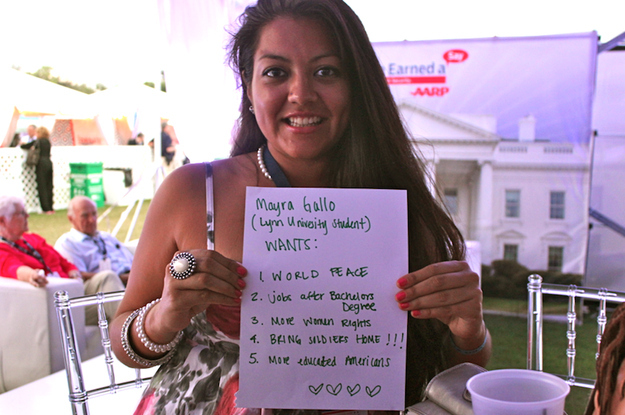 Say
Earned a
AARP
Mayra Gallo
(Lynn University Student)
WANTS:
1. WORLD PEACE
2. Jobs after Bachelors
Degree
3. More Women Rights
4. BRING SOLDIERS HOME !!!
5. More educated Americans